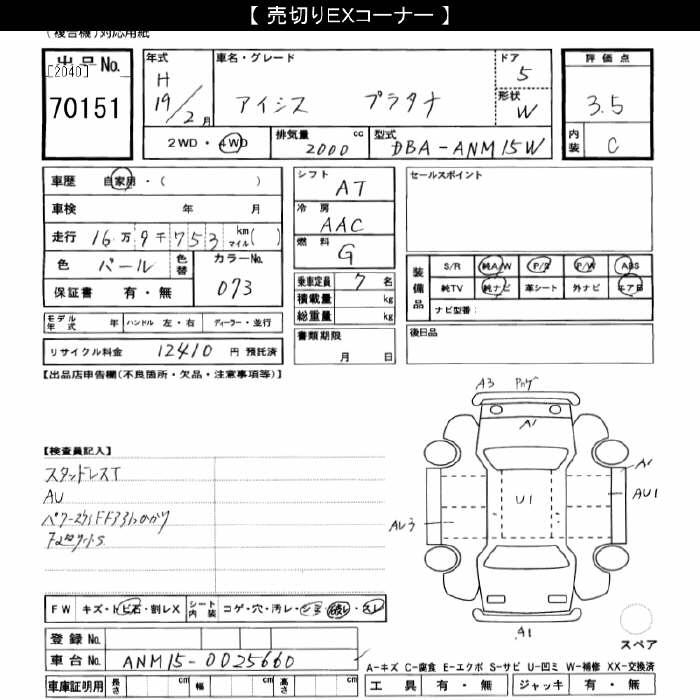 【 売切りEXコーナー 】
(複合機)対応用紙
出品No.
[2040]
70151
年式
H 19/2月
車名・グレード
アイシス プラタナ
ドア 5
形状 W
評価点
3.5
内装 C
2WD・4WD
排気量 2000 cc
型式 DBA-ANM15W
車歴 自家用・( )
車検 年 月
走行 16万9千753 km マイル( )
色 パール 色替
カラーNo. 073
保証書 有・無
シフト AT
冷房 AAC
燃料 G
乗車定員 7 名
積載量 kg
総重量 kg
書類期限
月 日
セールスポイント
装備品
S/R 純A/W P/S P/W ABS
純TV 純ナビ 革シート 外ナビ エアB
ナビ型番:
後日品
モデル年式 年 ハンドル 左・右 ディーラー・並行
リサイクル料金 12410 円 預託済
【出品店申告欄(不良箇所・欠品・注意事項等)】
【検査員記入】
AU
A3
A1
U1
A1
AU1
AU3
A1
FW キズ・トビ石・割レX
シート内装 コゲ・穴・汚レ・シミ・破レ・スレ
登録No.
車台No. ANM15-0025660
車庫証明用 長さ cm 幅 cm 高さ cm
スペア
A-キズ C-腐食 E-エクボ S-サビ U-凹ミ W-補修 XX-交換済
工具 有・無 ジャッキ 有・無